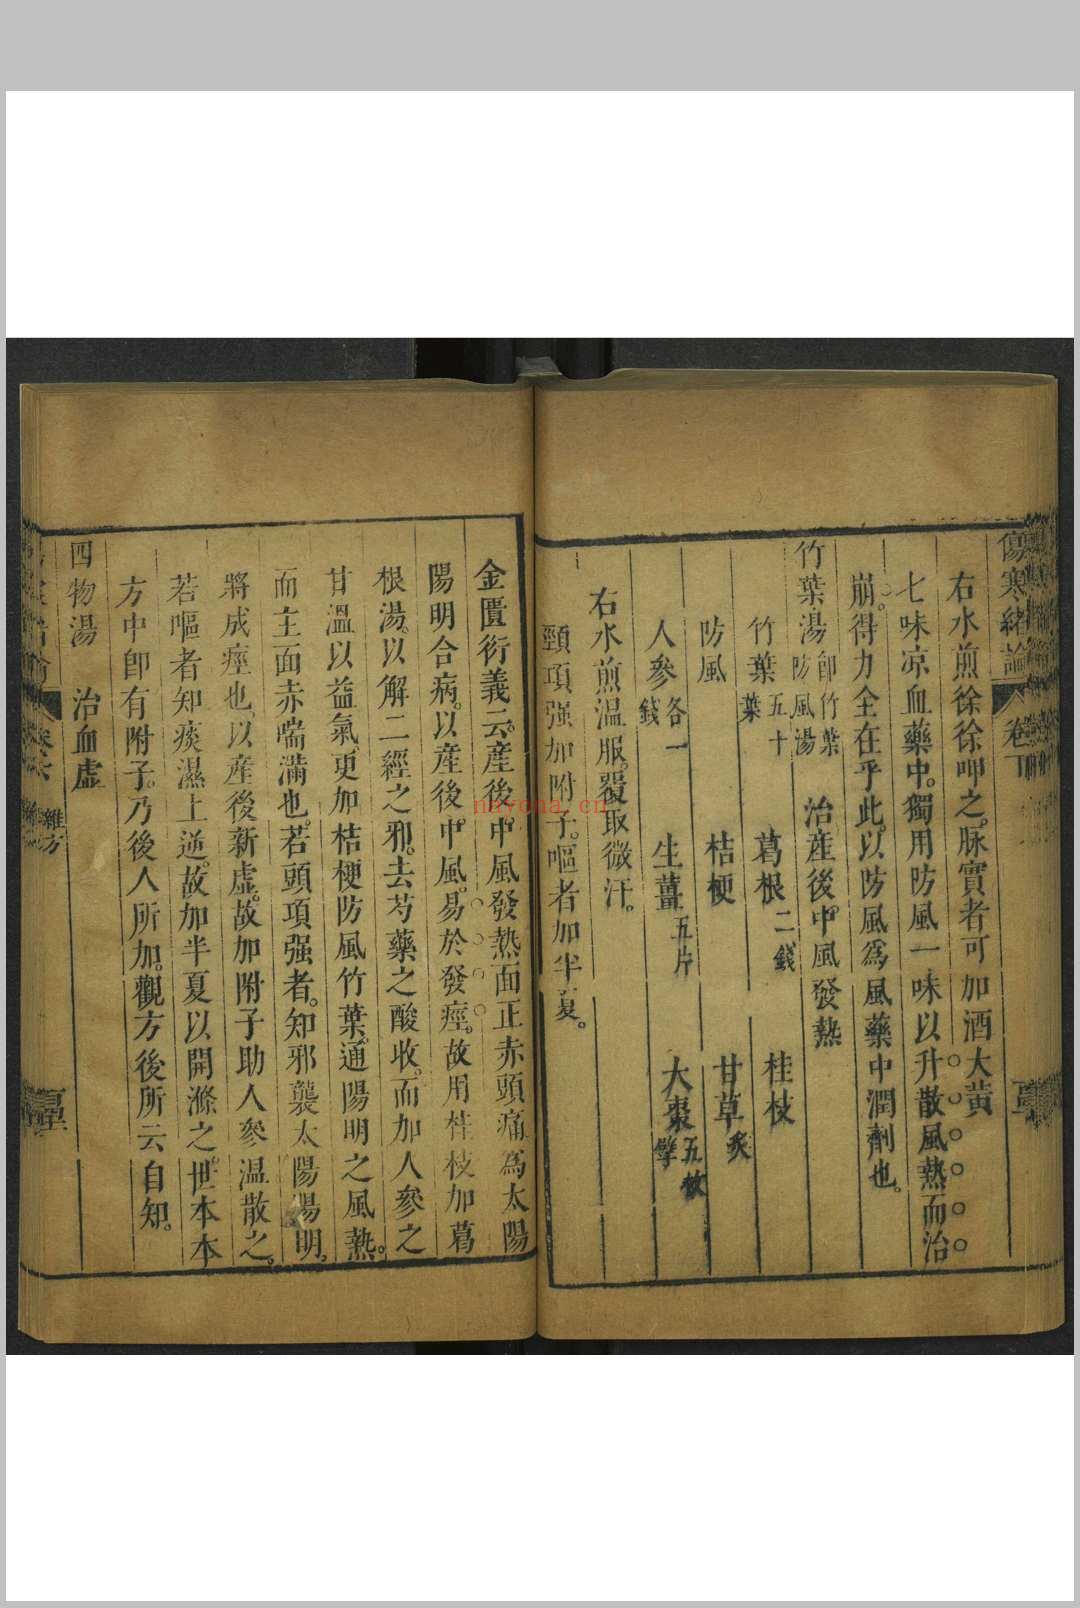 傷寒緒論 卷下
右水煎徐徐呷之。脉實者可加酒大黃
七味凉血藥中。獨用防風一味以升散風熱而治
崩。得力全在乎此。以防風爲風藥中潤劑也。
竹葉湯 卽竹葉防風湯 治產後中風發熱
竹葉 五十葉 葛根 二錢 桂枝
防風 桔梗 甘草 炙
人參 各一錢 生薑 五片 大棗 五枚擘
右水煎溫服。覆取微汗。
頸項强加附子。嘔者加半夏。
金匱衍義云。產後中風發熱面正赤頭痛爲太陽
陽明合病。以產後中風。易於發痙。故用桂枝加葛
根湯。以解二經之邪。去芍藥之酸收。而加人參之
甘溫以益氣更加桔梗防風竹葉。通陽明之風熱。
而主面赤喘滿也。若頭項强者。知邪襲太陽陽明。
將成痙也。以產後新虛。故加附子助人參溫散之。
若嘔者知痰濕上逆。故加半夏以開滌之。世本本
方中卽有附子。乃後人所加。觀方後所云自知。
四物湯 治血虛
雜方
navona.cn